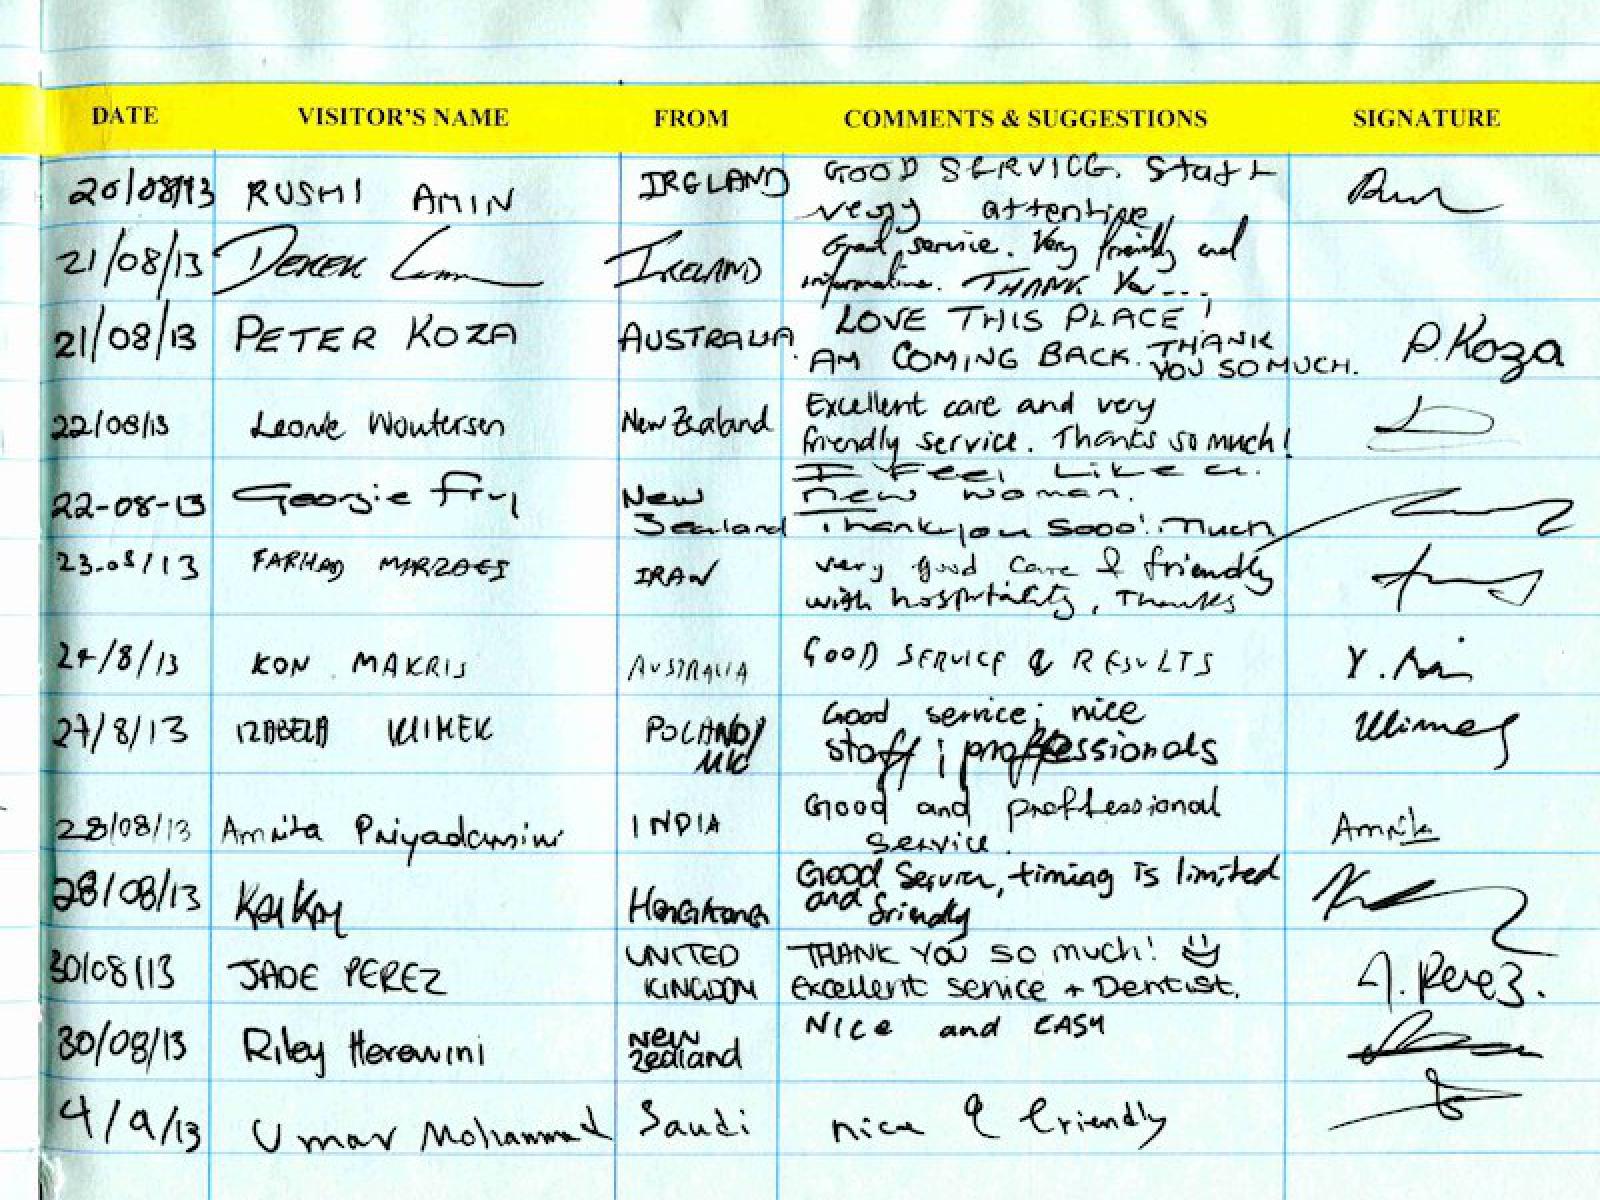 DATE VISITOR'S NAME FROM COMMENTS & SUGGESTIONS SIGNATURE
20/08/13 RUSHI AMIN IRELAND GOOD SERVICE. Staff
very attentive
21/08/13 DEREK IRELAND Good service. Very friendly and
informative. THANK You...
21/08/13 PETER KOZA AUSTRALIA. LOVE THIS PLACE! P.Koza
AM COMING BACK. THANK
YOU SO MUCH.
22/08/13 Leonie Woutersen New Zealand Excellent care and very
friendly service. Thanks so much!
22-08-13 Georgie Fry New I Feel Like a
Zealand new woman.
Thankyou sooo! Much
23-08/13 FARHAD MIRZAEI IRAN very good care & friendly
with hospitality, Thanks
27/8/13 KON MAKRIS AUSTRALIA GOOD SERVICE & RESULTS
27/8/13 IZABELA KLIMEK POLAND/ Good service; nice Klimek
UK staff; proffessionals
28/08/13 Amrita Priyadarsini INDIA Good and proffessional Amrita
service.
28/08/13 KaiKay HongKong Good Service, timing is limited
and friendly
30/08/13 JADE PEREZ UNITED THANK YOU SO much! J. Perez.
KINGDOM Excellent service + Dentist.
30/08/13 Riley Herewini NEW Nice and EASY
Zealand
4/9/13 Umar Mohammad Saudi nice & friendly